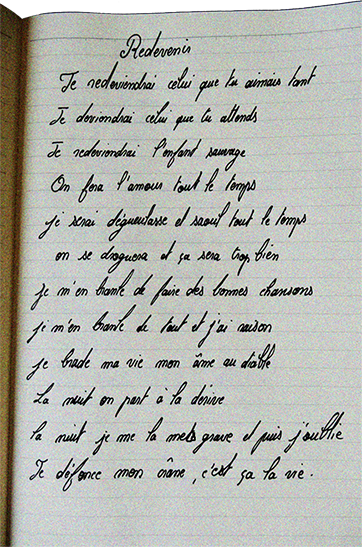 Redevenir
Je redeviendrai celui que tu aimais tant
Je deviendrai celui que tu attends
Je redeviendrai l'enfant sauvage
On fera l'amour tout le temps
je serai dégueulasse et saoul tout le temps
on se droguera et ça sera trop bien
je m'en branle de faire des bonnes chansons
je m'en branle de tout et j'ai raison
je brade ma vie mon âme au diable
La nuit on part à la dérive
la nuit je me la mets grave et puis j'oublie
Je défonce mon crâne, c'est ça la vie.